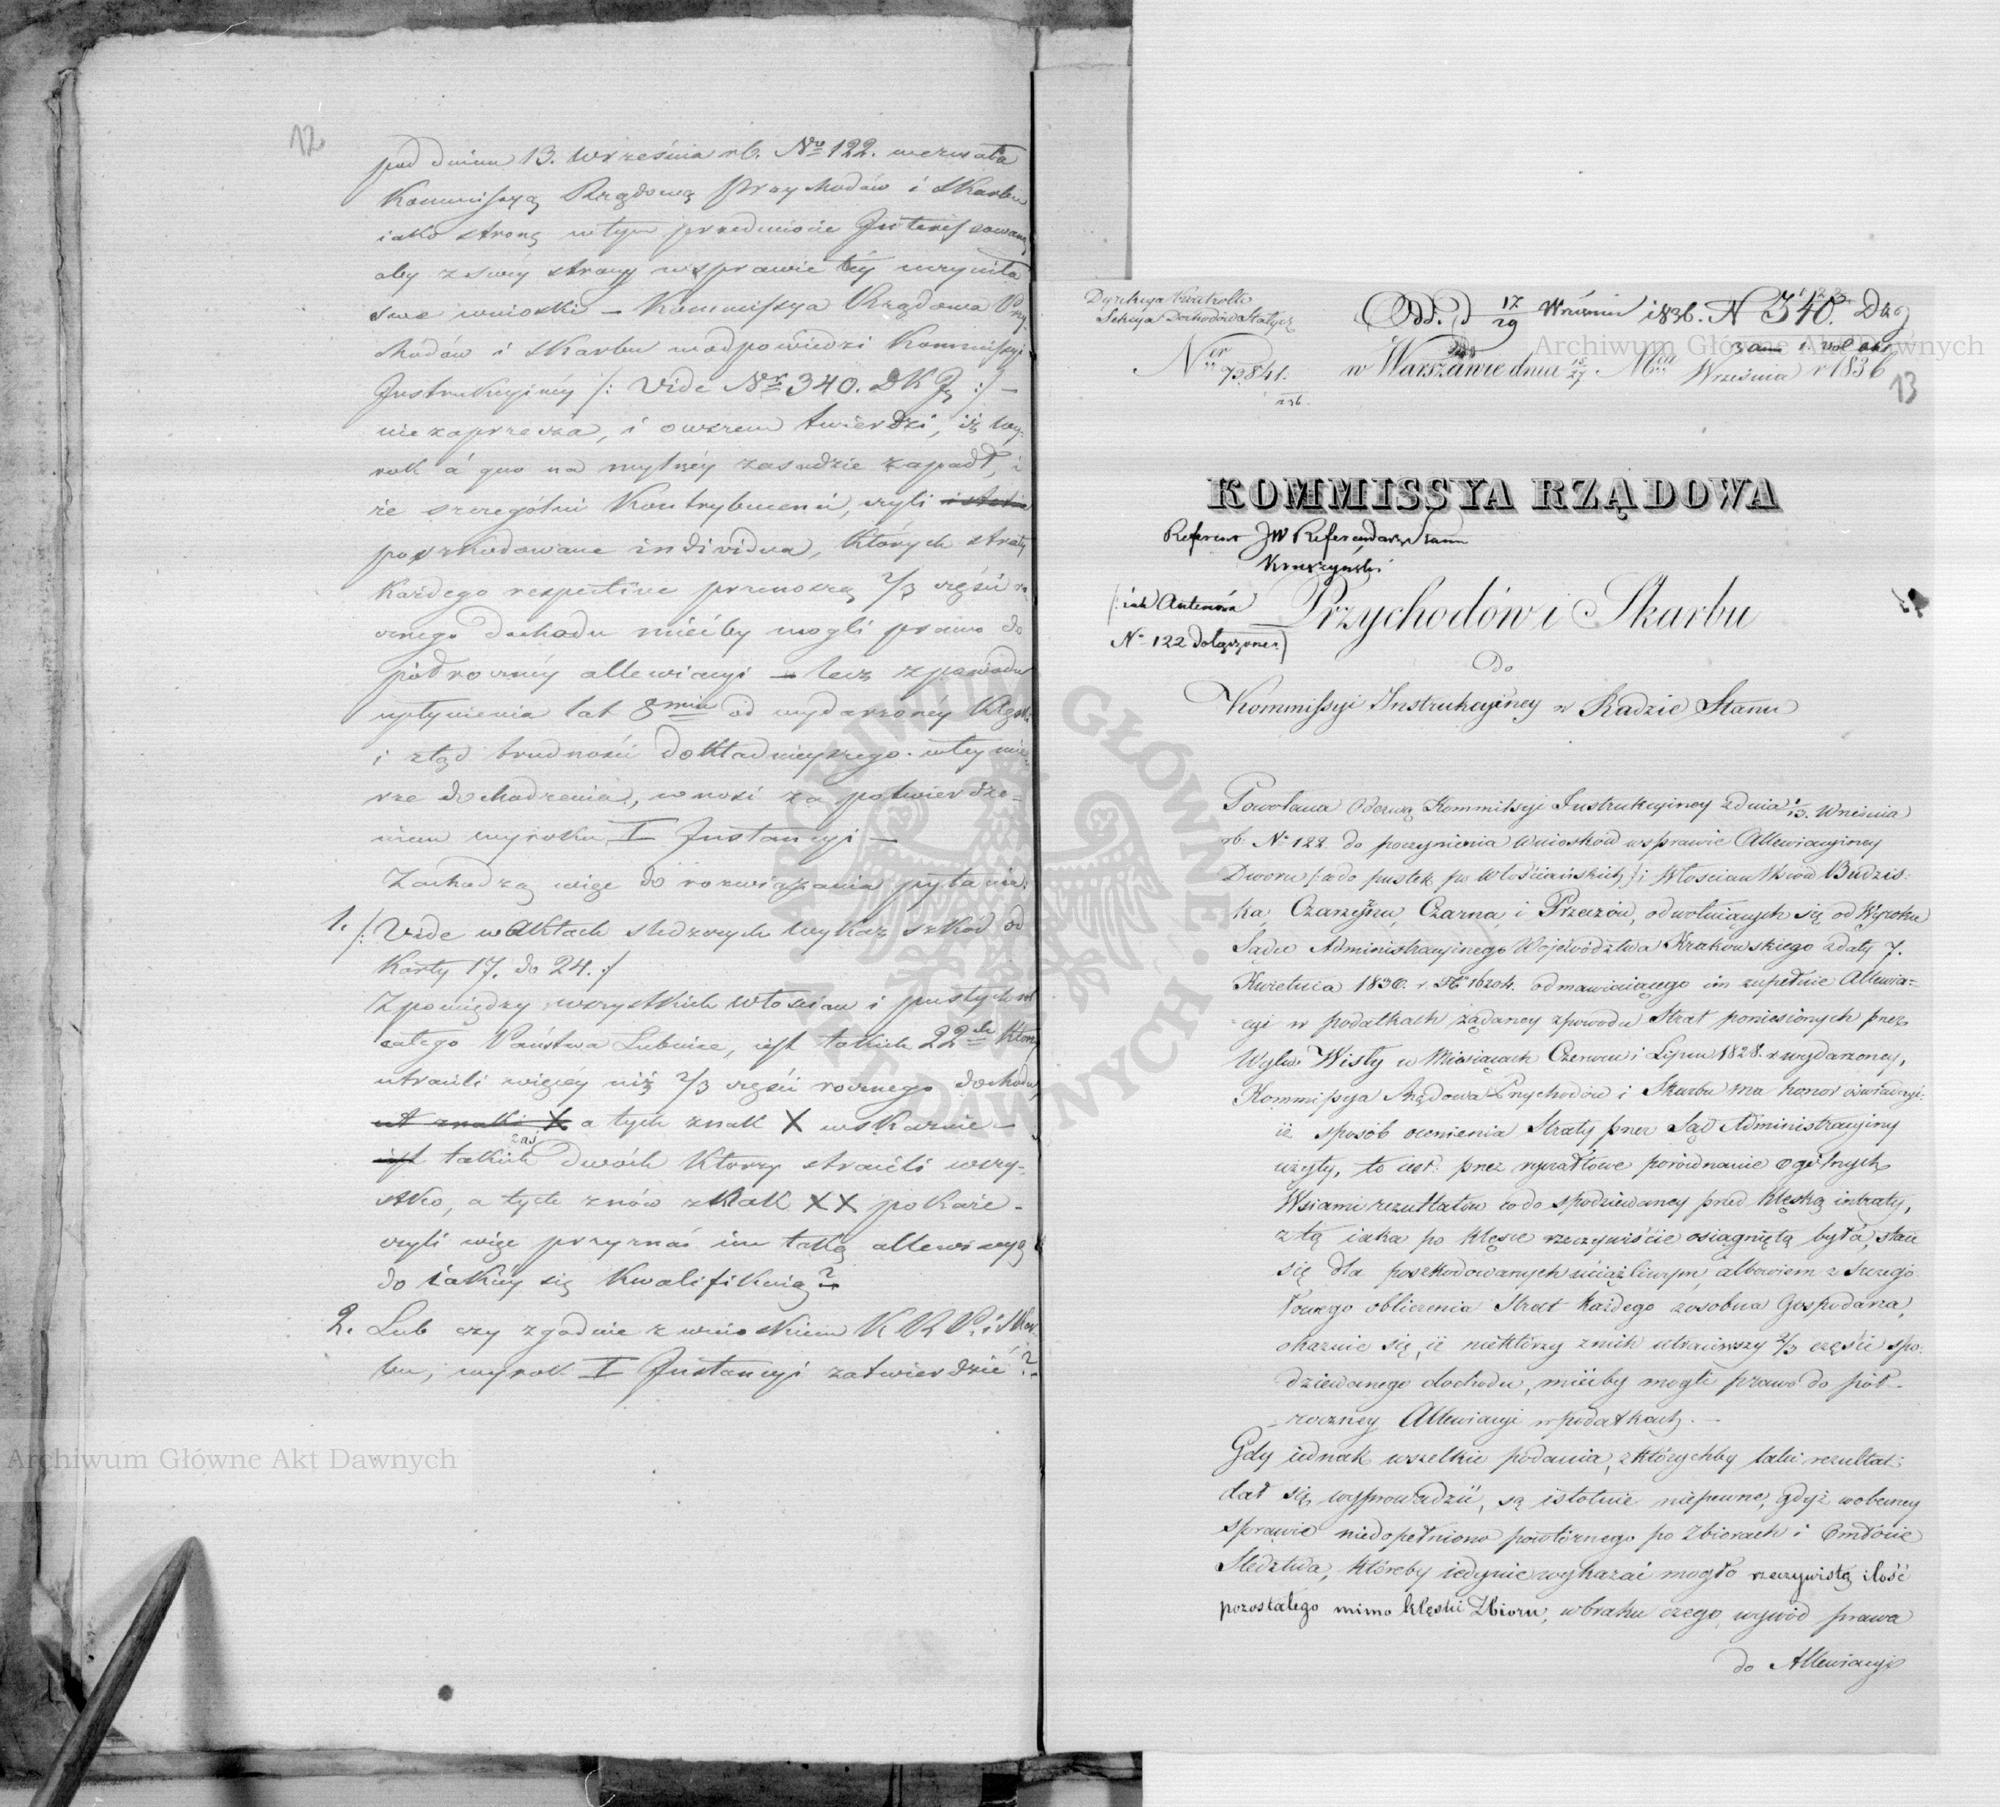 12
pod dniem 13. Września rb. Nro 122. wezwała
Kommissyą Rządową Przychodów i Skarbu
iako stronę w tym przedmiocie Interessowaną
aby z swéy strony w sprawie téy uczyniła
swe wnioski – Kommissya Rządowa Przy-
chodów i Skarbu w odpowiedzi Kommissyi
Instrukcyinéy /: Vide Nr 340. DKJ :/ –
nie zaprzecza, i owszem twierdzi, iż wy-
rok á quo na mylnéy zasadzie zapadł, i
że szczególni Kontrybuenci, czyli
poszkodowane individua, których straty
każdego respective przenoszą 2/3 części ro-
cznego dochodu miećby mogli prawo do
półrocznéy allewiacyi – lecz z powodu
upłynienia lat 8miu od wydarzoney klęski
i ztąd trudności dokładnieyszego w tey mie-
rze dochodzenia, wnosi za potwierdze-
niem wyroku I Instancyi –
Zachodzą więc do rozwiązania pytania:
1. /: Vide w aktach śledczych wykaz szkód od
Karty 17. do 24. :/
Z pomiędzy wszystkich włościan i pustych ról
całego Państwa Łubnice, iest takich 22ch którzy
utracili więcéy niż 2/3 części rocznego dochodu,
ut znaki X a tych znak X wskazuie –
iest takich zaś dwóch którzy stracili wszy-
stko, a tych znów znak XX pokaże –
czyli więc przyznać im taką allewiacyą
do iakiéy się kwalifikuią? –
2. Lub czy zgodnie z wnioskiem K R P. i Skar-
bu, wyrok I Instancyi zatwierdzić?
Dyrekcya Kontroli
Sekcya Dochodów Stałych
Ner 79841.
Odd. d 17/29 Wrześniu 1836. N 340. DKJ
w Warszawie dnia 15/27 Mca Września r 1836
13
KOMMISSYA RZĄDOWA
Referent JW Referendarz Stanu
Kruszyński
Przychodów i Skarbu
(: iak Antenora
No 122 dołączone:)
Do
Kommissyi Instrukcyiney w Radzie Stanu
Powołana Odezwą Kommissyi Instrukcyiney z dnia 1/13. Września
rb. No 122 do poczynienia wniosków w sprawie Allewiacyiney
Dworu /: co do pustek po Włościańskich :/ i Włościan Wsiów Budzis-
ka, Czarzyzna, Czarna, i Przeczów, odwołuiących się od Wyroku
Sądu Administracyinego Województwa Krakowskiego z daty 7.
Kwietnia 1830. r No 16204. odmawiaiącego im zupełnie Allewia-
cyi w podatkach żądaney z powodu Strat poniesionych przez
Wylew Wisły w Miesiącach Czerwcu i Lipcu 1828. r wydarzoney,
Kommissya Rządowa Przychodów i Skarbu ma honor oświadczyć
iż sposób ocenienia Straty przez Sąd Administracyiny
użyty, to iest: przez ryczałtowe porównanie ogólnych
Wsiami rezultatów co do spodziewaney przed klęską intraty,
z tą iaka po klęsce rzeczywiście osiągniętą była, staie
się dla poszkodowanych uciążliwym, albowiem z szczegó-
łowego obliczenia Strat każdego zosobna Gospodarza,
okazuie się, iż niektórzy z nich utraciwszy 2/3 części spo-
dziewanego dochodu, mieliby mogli prawo do pół-
roczney Allewiacyi w podatkach. –
Gdy iednak wszelkie podania, z którychby taki rezultat
dał się wyprowadzić, są istotnie niepewne, gdyż w obecney
sprawie niedopełniono powtórnego po Zbiorach i Omłocie
Śledztwa, któreby iedynie wykazać mogło rzeczywistą ilość
pozostałego mimo klęski Zbioru, w braku czego, wywód prawa
do Allewiacyi
Archiwum Główne Akt Dawnych
Archiwum Główne Akt Dawnych
ARCHIWUM GŁÓWNE AKT DAWNYCH